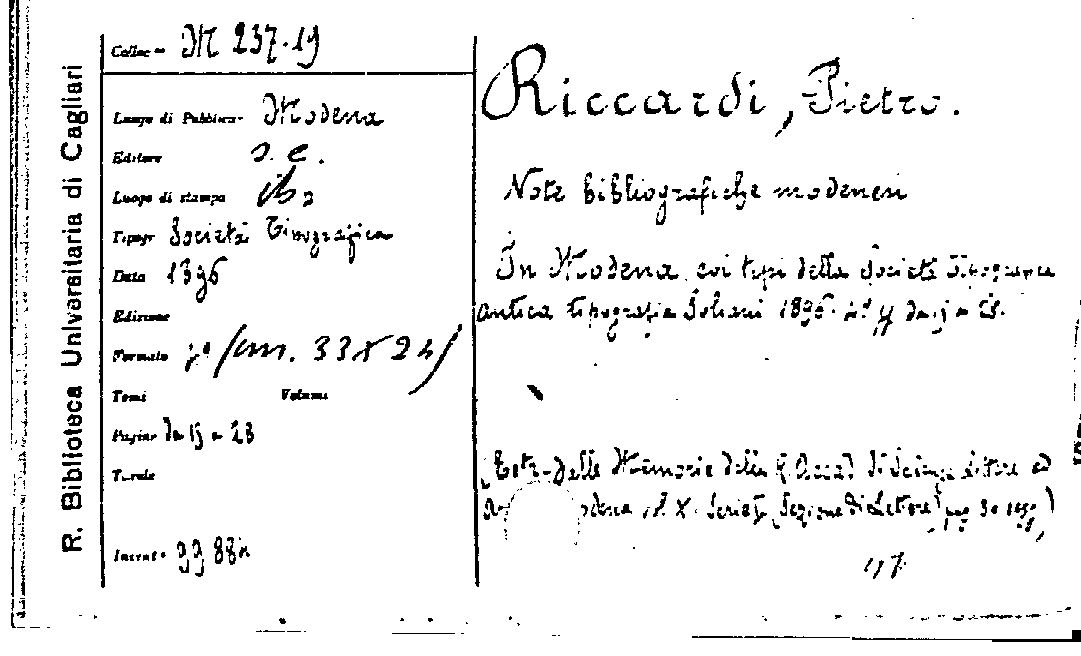 R. Biblioteca Universitaria di Cagliari
Colloc. M 237-19
Luogo di Pubblicaz. Modena
Editore s. e.
Luogo di stampa
Tipogr. Società Tipografica
Data 1896
Edizione
Formato (cm. 33 x 24)
Tomi Volumi
Pagine da 15 a 23
Tavole
Invent.
Riccardi, Pietro.
Note bibliografiche modenesi
In Modena coi tipi della Società Tipografica
antica tipografia Soliani 1896.
(Estr. dalle Memorie della R. Accad. di Scienze Lettere ed
X. Serie Sezione di Lettere